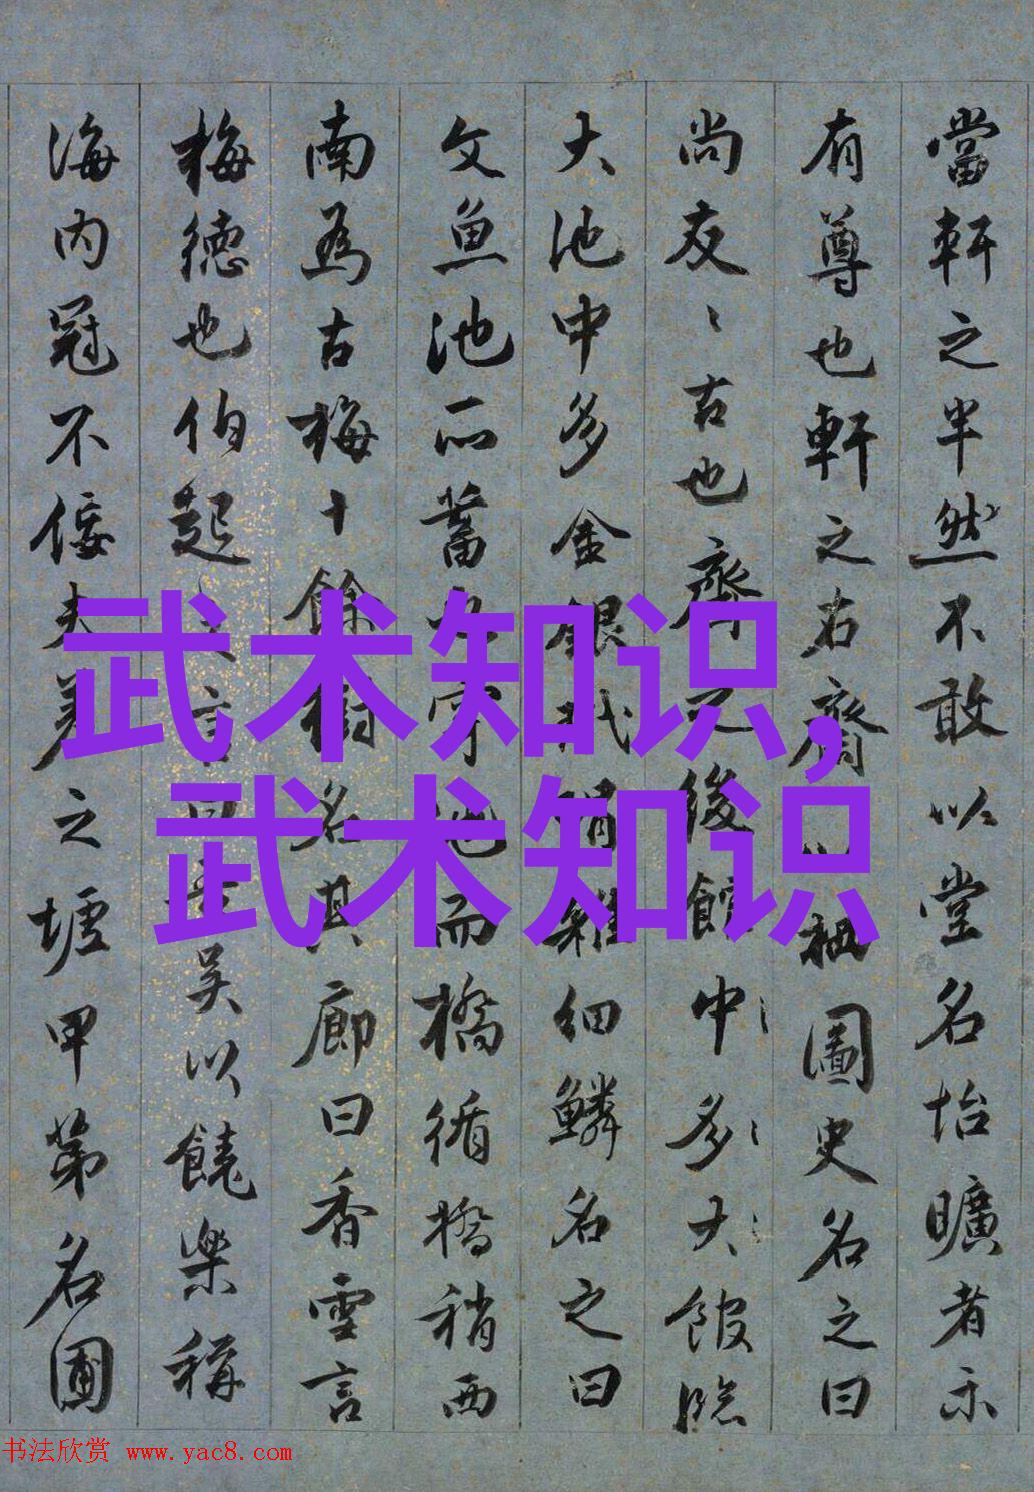 當軒之半然不敢以堂名怡曠者示
有尊也軒之右齋以栖圖史名之曰
尚友々古也齋之後館中多大館臨
大池中多金銀玳瑁雜細鱗名之曰
文魚池所蓄也而橋循橋稍西
南為古梅十餘樹名其廊曰香雪言
梅德也伯起吳以饒樂稱
海内冠不佞夫差之墟甲第名圃
武术知识,
武术知识
书法欣赏 www.yac8.com